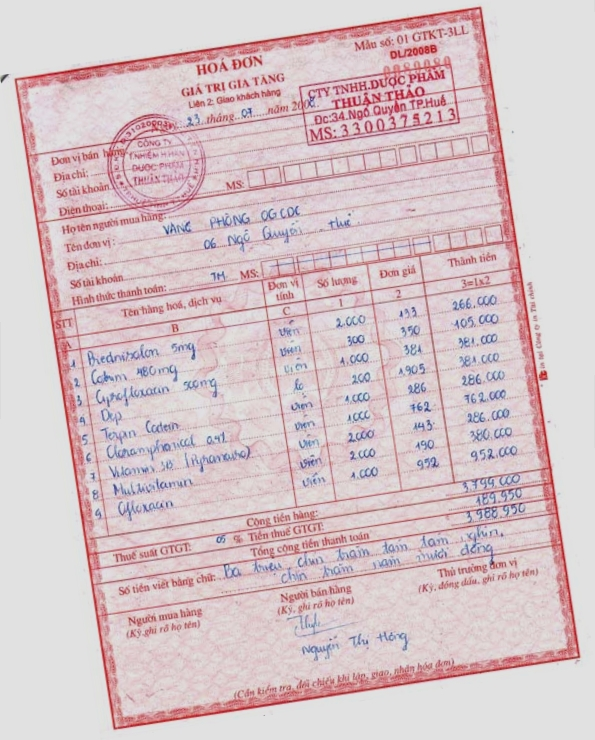 HOÁ ĐƠN
Mẫu số: 01 GTKT-3LL
GIÁ TRỊ GIA TĂNG
DL/2008B
Liên 2: Giao khách hàng
0080080
23 tháng 07 năm 2008
CTY TNHH.DƯỢC PHẨM
THUẬN THẢO
Đc:34.Ngô Quyền TP.Huế
MS: 3300375213
CÔNG TY
T.NHIỆM H.HẠN
DƯỢC PHẨM
THUẬN THẢO
Đơn vị bán hàng:
Địa chỉ:
Số tài khoản:
Điện thoại: MS:
Họ tên người mua hàng:
Tên đơn vị: VĂNG PHÒNG OGCDC
Địa chỉ: 06 Ngô Quyền Huế
Số tài khoản
Hình thức thanh toán: TM MS:
STT Tên hàng hoá, dịch vụ Đơn vị tính Số lượng Đơn giá Thành tiền
A B C 1 2 3=1x2
1 Prednizolon 5mg viên 2.000 133 266.000
2 Cotrim 480mg viên 300 350 105.000
3 Ciprofloxacin 500mg viên 1.000 381 381.000
4 Dep lọ 200 1.905 381.000
5 Terpin Codein viên 1.000 286 286.000
6 Cloramphenicol viên 1.000 762 762.000
7 Vitamin 3B viên 2.000 143 286.000
8 Multivitamin viên 2.000 190 380.000
9 Ofloxacin viên 1.000 952 952.000
Cộng tiền hàng: 3.799.000
Thuế suất GTGT: 05 % Tiền thuế GTGT: 189.950
Tổng cộng tiền thanh toán 3.988.950
Số tiền viết bằng chữ: Ba triệu, chín trăm tám tám nghìn,
chín trăm năm mươi đồng
Người mua hàng
(Ký, ghi rõ họ tên)
Người bán hàng
(Ký, ghi rõ họ tên)
Thủ trưởng đơn vị
(Ký, đóng dấu, ghi rõ họ tên)
Nguyễn Thị Hồng
(Cần kiểm tra, đối chiếu khi lập, giao, nhận hóa đơn)
in tại Công ty in Tài chính